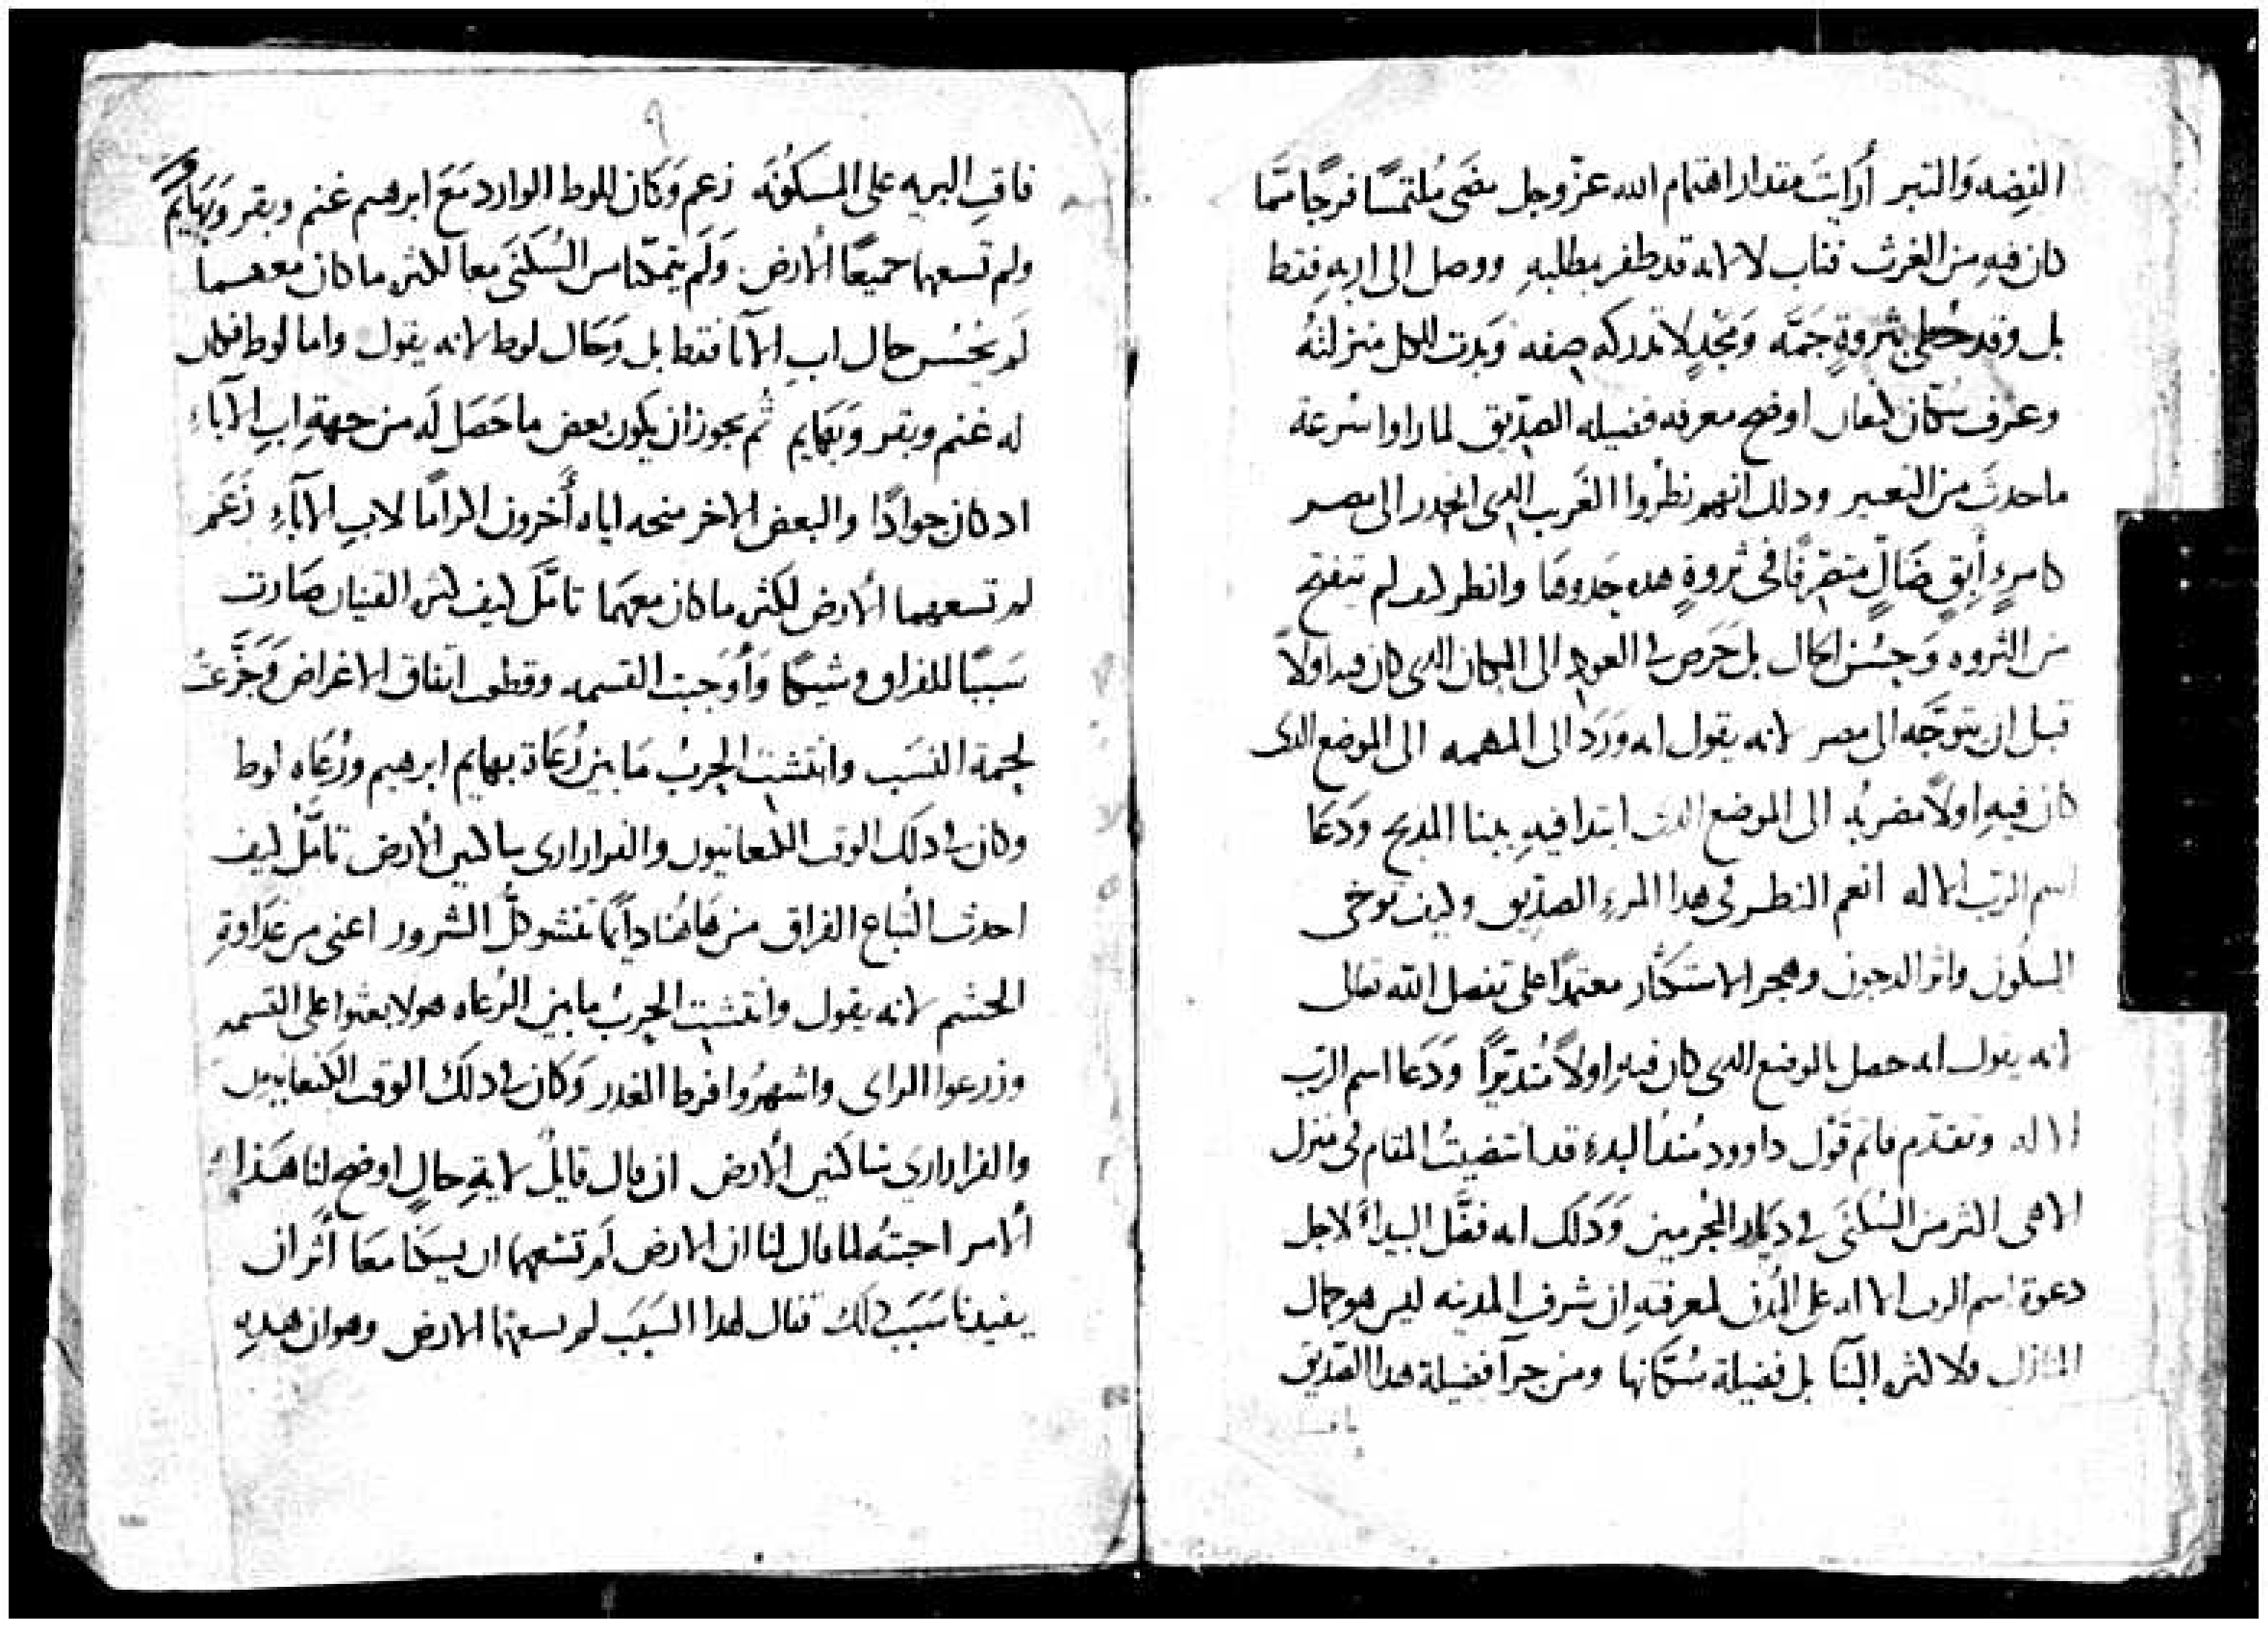 الفضه والتبر أرايتَ مقدار اهتمام الله عزّ وجل مضَى مُلتمسًا فرجًا ممّا
كان فيه من الغرث فناب لا لانه قد ظفر بطلبهِ ووصل الى اربهِ فقط
بل وقد حظى بثروةٍ جَمَّه وَمَجْدٍ لا تدركه صفه وَبدت للكل منزلتهُ
وعرف سُكّان كنعان اوضح معرفه فضيله الصدّيق لما راوا سُرعة
ما حدثَ من التغيير ودلك انهم نظروا الغَريب الدى انحدر الى مصر
كامرءٍ أَبِقٍ ضَالٍ متصّرفًا فى ثروةٍ هده جَدوها وانظر كيف لم ينتفخ
من الثروه وَحُسُن الحال بل حَرَص فى العود الى المكان الدى كان فيه اولاً
قبل ان يتوجّه الى مصر لانه يقول انه وَرَدَ الى المهمه الى الموضع الدى
كان فيهِ اولاً مضربُه الى الموضع الدى ابتدا فيهِ ببنا المدبح وَدَعَا
اسم الرّب الاله انعم النظر فى هدا المرءِ الصدّيق وكيف توخى
السكون واثر الدجون وهجر الاستكثار معتمدًا على تفضل الله تعالى
لانه يقول انه حصل بالموضع الدى كان فيهِ اولاً مُتديّرًا وَدَعَا اسم الرّب
الاله وتقدّم فاتم قَول داوود مُنذُ البدءِ قد انتضيتُ المقام فى منزل
الاهى اكثر من السُكنَى فى ديار المُجرمين وَدَلك انه فضَّل البيداءَ لاجل
دعوة اسم الرب الاله على المُدن لمعرفتهِ ان شرف المدينه ليس هو جمال
المنازل ولا كثره البنّا بل فضيلة سُكّانها ومن جرآ فضيلة هدا الصّديق
فاقتِ البريه على المسكونَه زعم وَكان للوط الوارد مَعَ ابرهيم غنم وبقر وَبَهايم
ولم تسعهما جميعًا الأرض وَلَم يتمكّنا من السُكنَى معا لكثره ما كان معهما
لم يَحْسُن حال اب الآبا فقط بل وَحَال لوط لانه يقول واما لوط فكان
له غنم وبقر وَبَهايم ثُم يجوز ان يكون بعض ما حَصَل لَه من جهةِ ابِ الآباءِ
اد كان جوادًا والبعض الاخر منحه اياه أُخرون اكرامًا لابِ الآباءِ زَعَم
لم تسعهما الأرض لكثره ما كان معهما تامَّل كيف كثره القنيان صَارت
سَببًا للفراق وشيكًا وَأَوجَبت القسمه وقطعت اتفاق الاغراض وَجَزَّعتْ
لحمة النسَب وانتشبت الحربُ مَا بين رُعَاة بهايم ابرهيم ورُعَاه لوط
وكان فى دلك الوقت الكنعانيون والفرارارى ساكنين الأرض تامَّل كيف
احدث اتُباع الفراق من هَاهُنا دايمًا تنشو كلُّ الشرور اعنى من عَدَاوةِ
الحشم لانه يقول وانتشبت الحربُ ما بين الرُعاه هولا بعثوا على القسمه
وزرعوا المراى واشهرُوا فرط الغدر وَكان فى دلكَ الوقت الكنعانيون
والفراراريَ ساكنين الأرض ان قال قايلٌ لايةِ حالٍ اوضح لنا هَذا
ألامر اجبتهُ لما قال لنا ان الارض لَم تسَعهما ان يسكنا مَعًا أَثر ان
يفيدنا سَبَب دلك فقال لهدا السَبَب لم تسعهما الارض وهو ان هدهِ